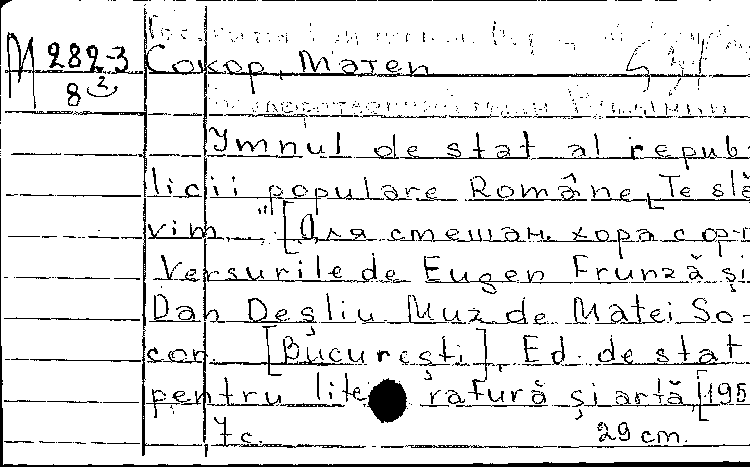 М 282-3 Сокор, Матеи
8 2
Ymnul de stat al repub-
licii populare Române, [Te slă
vim..." [Для смешан. хора с ф-п
Versurile de Eugen Frunză şi
Dan Deşliu. Muz de Matei So-
cor. [Bucureşti], Ed. de stat
pentru literatură şi artă, [195
7 c. 29 cm.